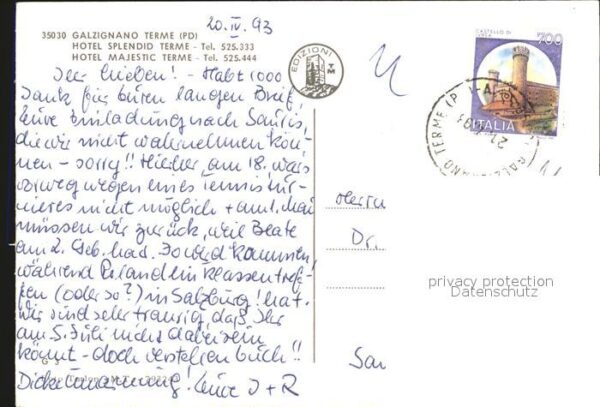 20.IV.93
35030 GALZIGNANO TERME (PD)
HOTEL SPLENDID TERME - Tel. 525.333
HOTEL MAJESTIC TERME - Tel. 525.444
EDIZIONI
TM
CASTELLO DI
IVREA
700
ITALIA
GALZIGNANO TERME (P
Ihr Lieben! - Habt 1000
Dank für Euren langen Brief,
Eure Einladung nach Sauris,
die wir nicht wahrnehmen kön-
nen - sorry!! Hierher am 18. wars
vorweg wegen eines Tennistur-
nieres nicht möglich + am 1. Mai
müssen wir zurück, weil Beate
am 2. Geb. hat. So wird kommen,
während Roland ein Klassentref-
fen (oder so?) in Salzburg! hat.
Wir sind sehr traurig, daß Ihr
am 5. Juli nicht dabei sein
könnt - doch verstehen Euch!!
Dicke Umarmung! Eure I + R
Herrn
Dr.
privacy protection
Datenschutz